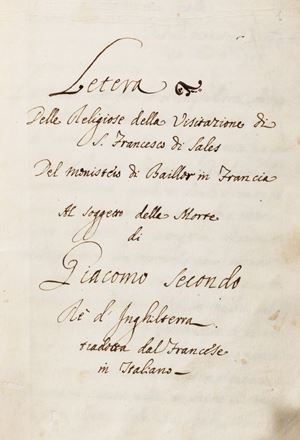 Letera
Delle Religiose della Visitazione di
S. Francesco di Sales
Del monisteio di Baillor in Francia
Al soggetto della Morte
di
Giacomo secondo
Rè d'Inghilterra.
tradotta dal Francese
in Italiano